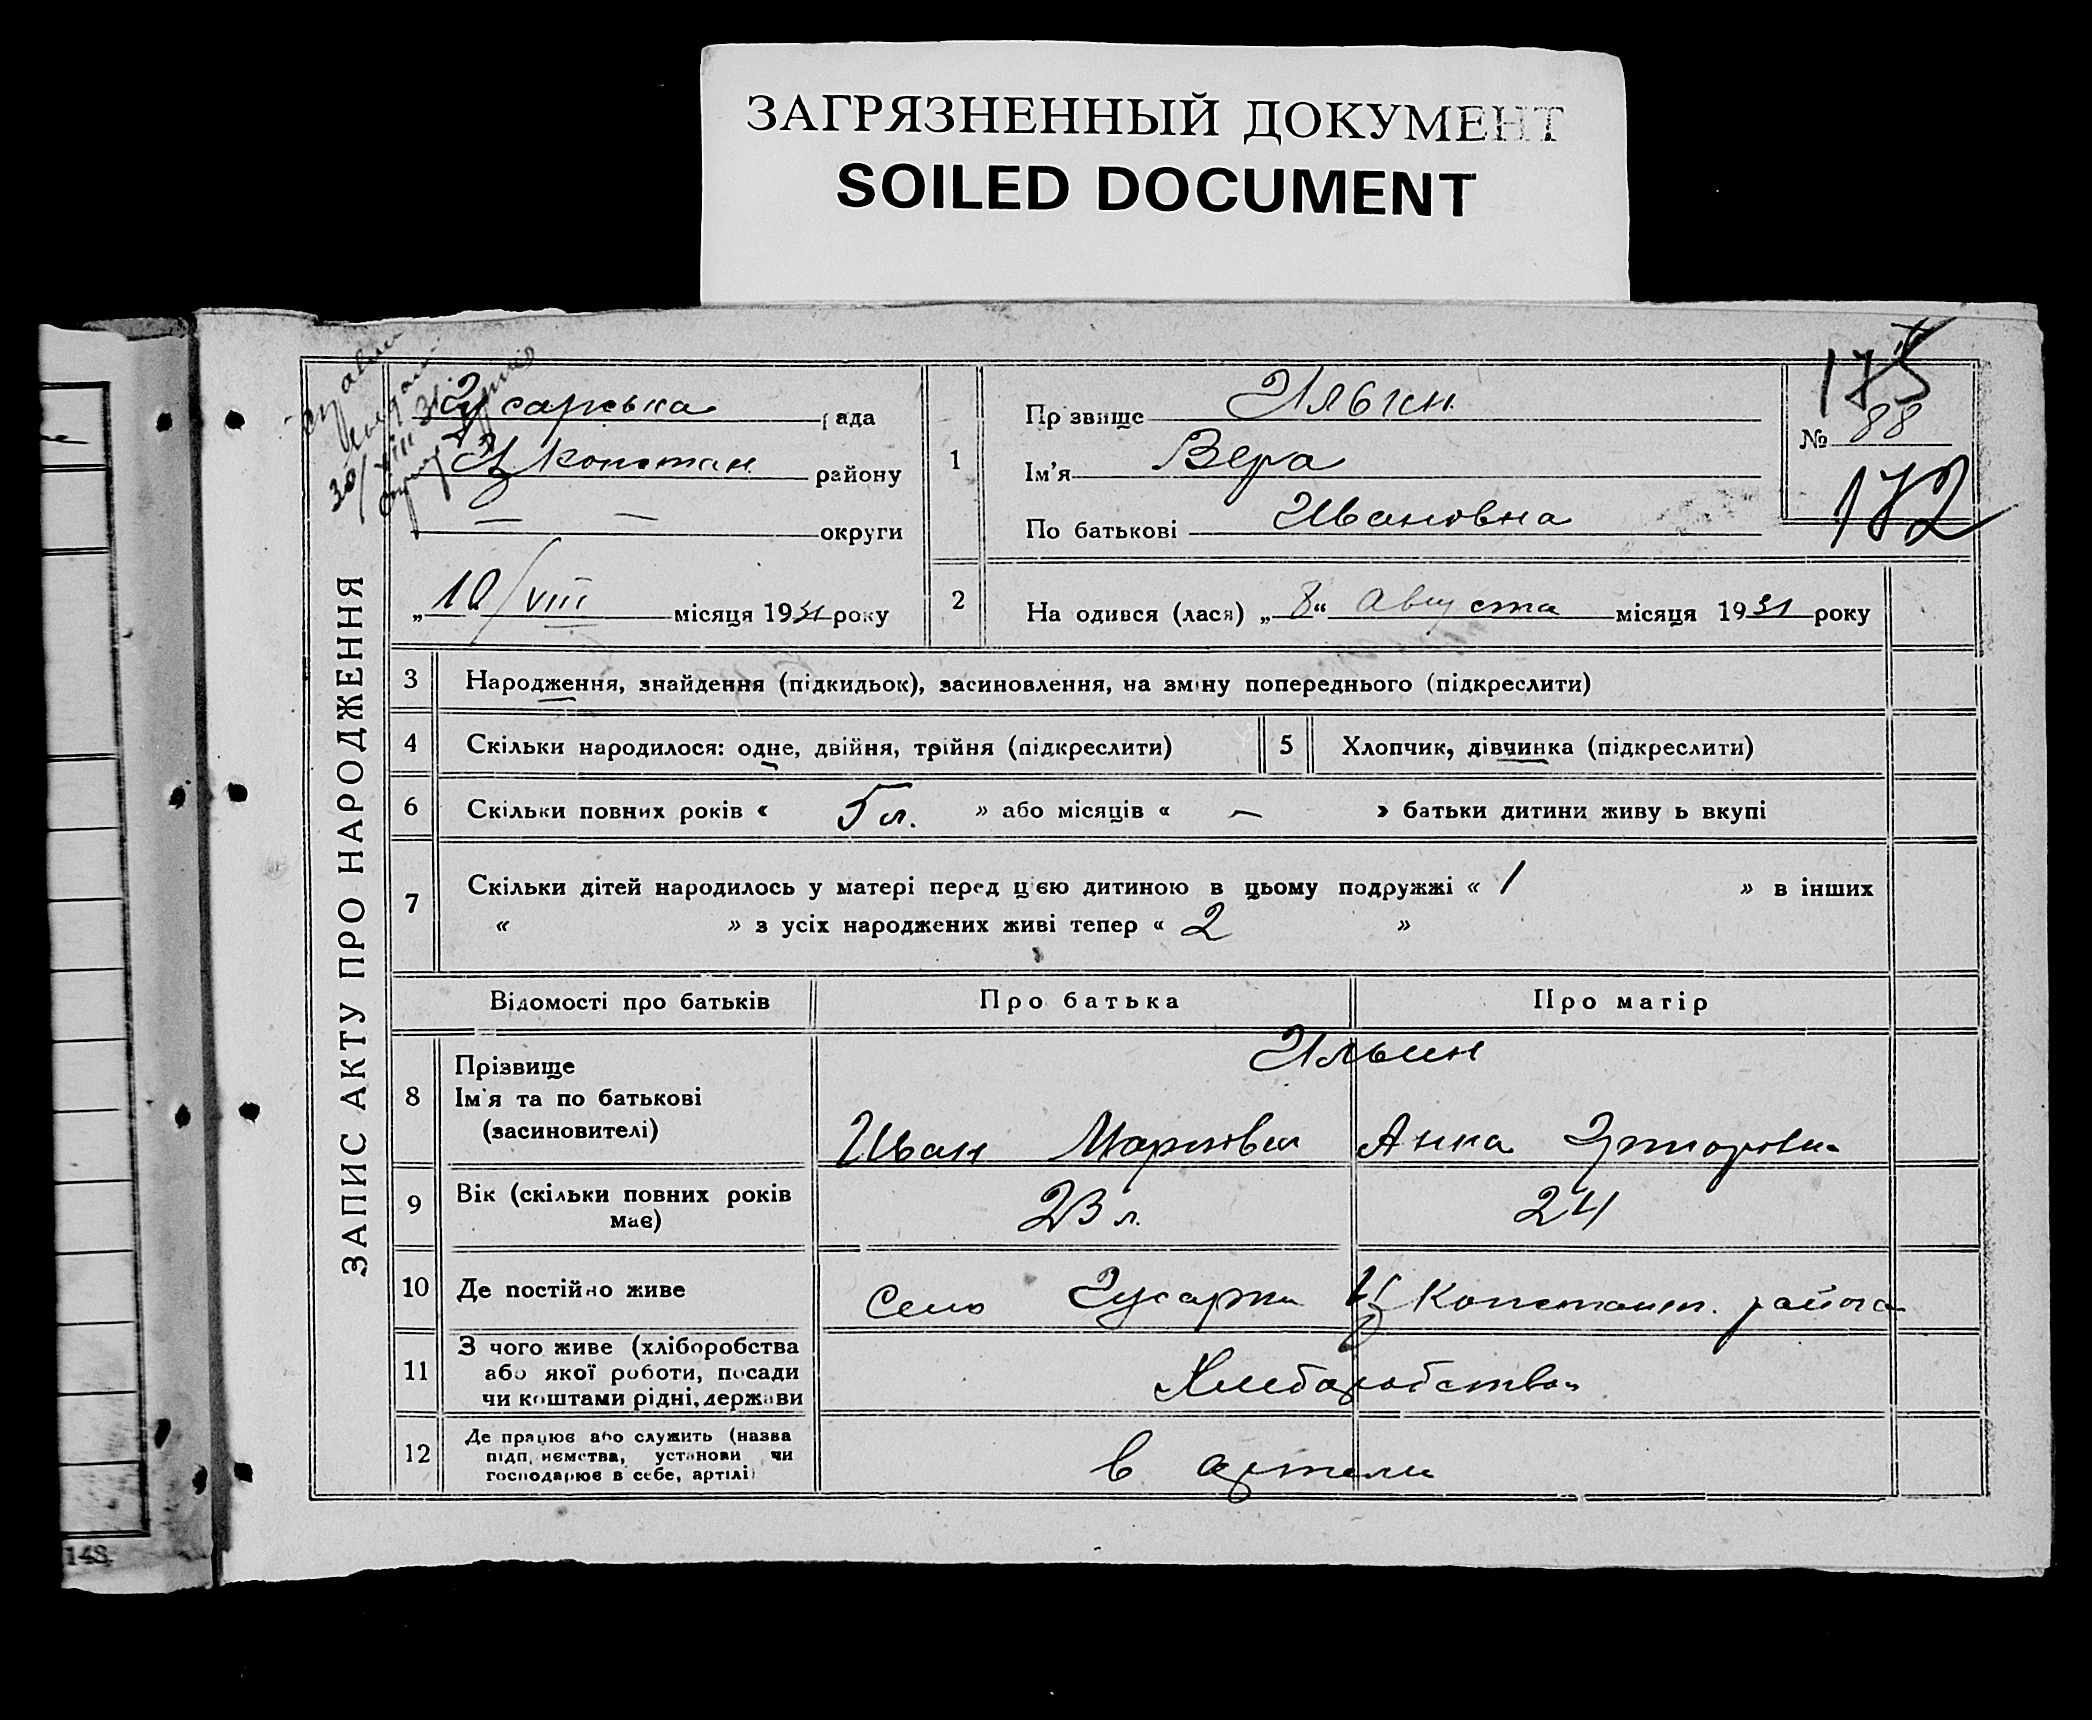 ЗАГРЯЗНЕННЫЙ ДОКУМЕНТ
SOILED DOCUMENT
ЗАПИС АКТУ ПРО НАРОДЖЕННЯ
Гусарська рада
Ц Констан. району
— — округи
„10/VIII місяця 1931 року
1
Пр звище Ильин
Ім'я Вера
По батькові Ивановна
175
№ 88
172
2 На одився (лася) „8“ Августа місяця 1931 року
3 Народження, знайдення (підкидьок), засиновлення, на зміну попереднього (підкреслити)
4 Скільки народилося: одне, двійня, трійня (підкреслити)
5 Хлопчик, дівчинка (підкреслити)
6 Скільки повних років « 5 л. » або місяців « — » батьки дитини живу ь вкупі
7 Скільки дітей народилось у матері перед цією дитиною в цьому подружжі « 1 » в інших
« » з усіх народжених живі тепер « 2 »
Відомості про батьків Про батька Про матір
8 Прізвище
Ім'я та по батькові
(засиновителі)
Ильин
Иван Анна
9 Вік (скільки повних років
має)
23 л. 24
10 Де постійно живе Село Гусарки Ц Констант. района
11 З чого живе (хліборобства
або якої роботи, посади
чи коштами рідні, держави
Хлеборобством
12 Де працює або служить (назва
підп, иємства, установи чи
господарює в себе, артілі)
в артели
148.